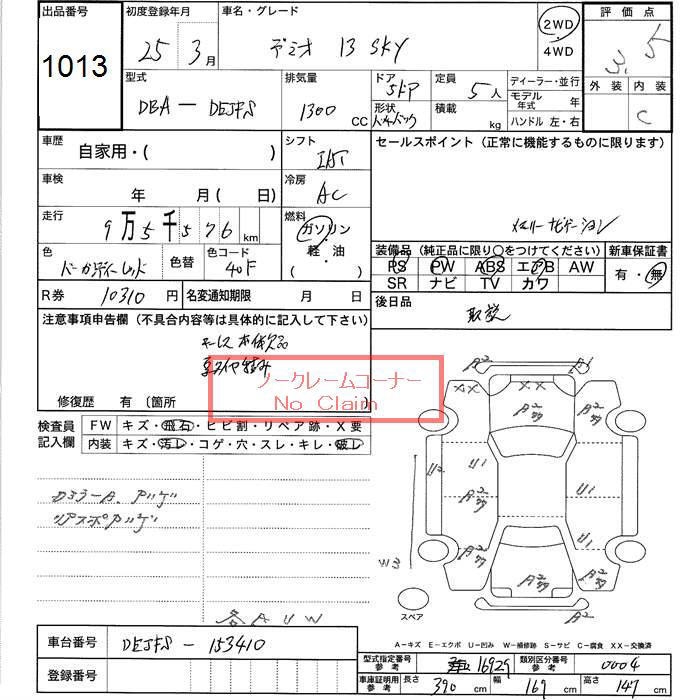 出品番号 初度登録年月 車名・グレード 評価点
1013 25 3月 デミオ 13 SKY 2WD 4WD 3.5
型式 排気量 ドア 定員 ディーラー・並行 外装 内装
DBA-DEJFS 1300 CC 5ドア 5人 モデル年式 年 C
形状 積載 kg ハンドル 左・右
車歴 シフト セールスポイント (正常に機能するものに限ります)
自家用・( )
車検 冷房
年 月 ( 日) AC
走行 燃料 メモリーナビゲーション
9万5千576km ガソリン・軽・油・( )
色 色替 色コード 装備品 (純正品に限り○をつけてください) 新車保証書
40F PS PW ABS エアB AW 有・無
SR ナビ TV カワ
R券 10310円 名変通知期限 月 日 後日品
取説
注意事項申告欄 (不具合内容等は具体的に記入して下さい)
修復歴 有 〔箇所
ノークレームコーナー
No Claim
検査員記入欄 FW キズ・飛石・ヒビ割・リペア跡・X要
内装 キズ・汚レ・コゲ・穴・スレ・キレ・破レ
A2 A1
XX XX A2 A2
U2 U1 U1
U1
W3
スペア
各AUW
A-キズ E-エクボ U-凹み W-補修跡 S-サビ C-腐食 XX-交換済
車台番号 DEJFS-153410
登録番号
型式指定番号 参考 16929 類別区分番号 参考 0004
車庫証明用 参考 長さ 390 cm 幅 169 cm 高さ 147 cm